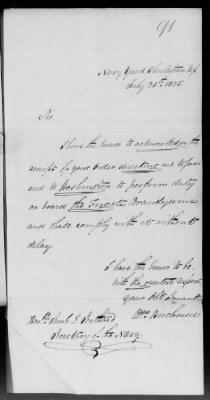 91
Navy Yard Charlestown Ms
July 28th 1825.
Sir
I have the honor to acknowledge the
receipt of your Order directing me to proc
eed to Washington to perform duty
on board the Frigate Brandywine
and shall comply with it without
delay.
I have the honor to be,
with the greatest respect
your Obt Servant
Wm
Honble Saml L Southard
Secretary of the Navy